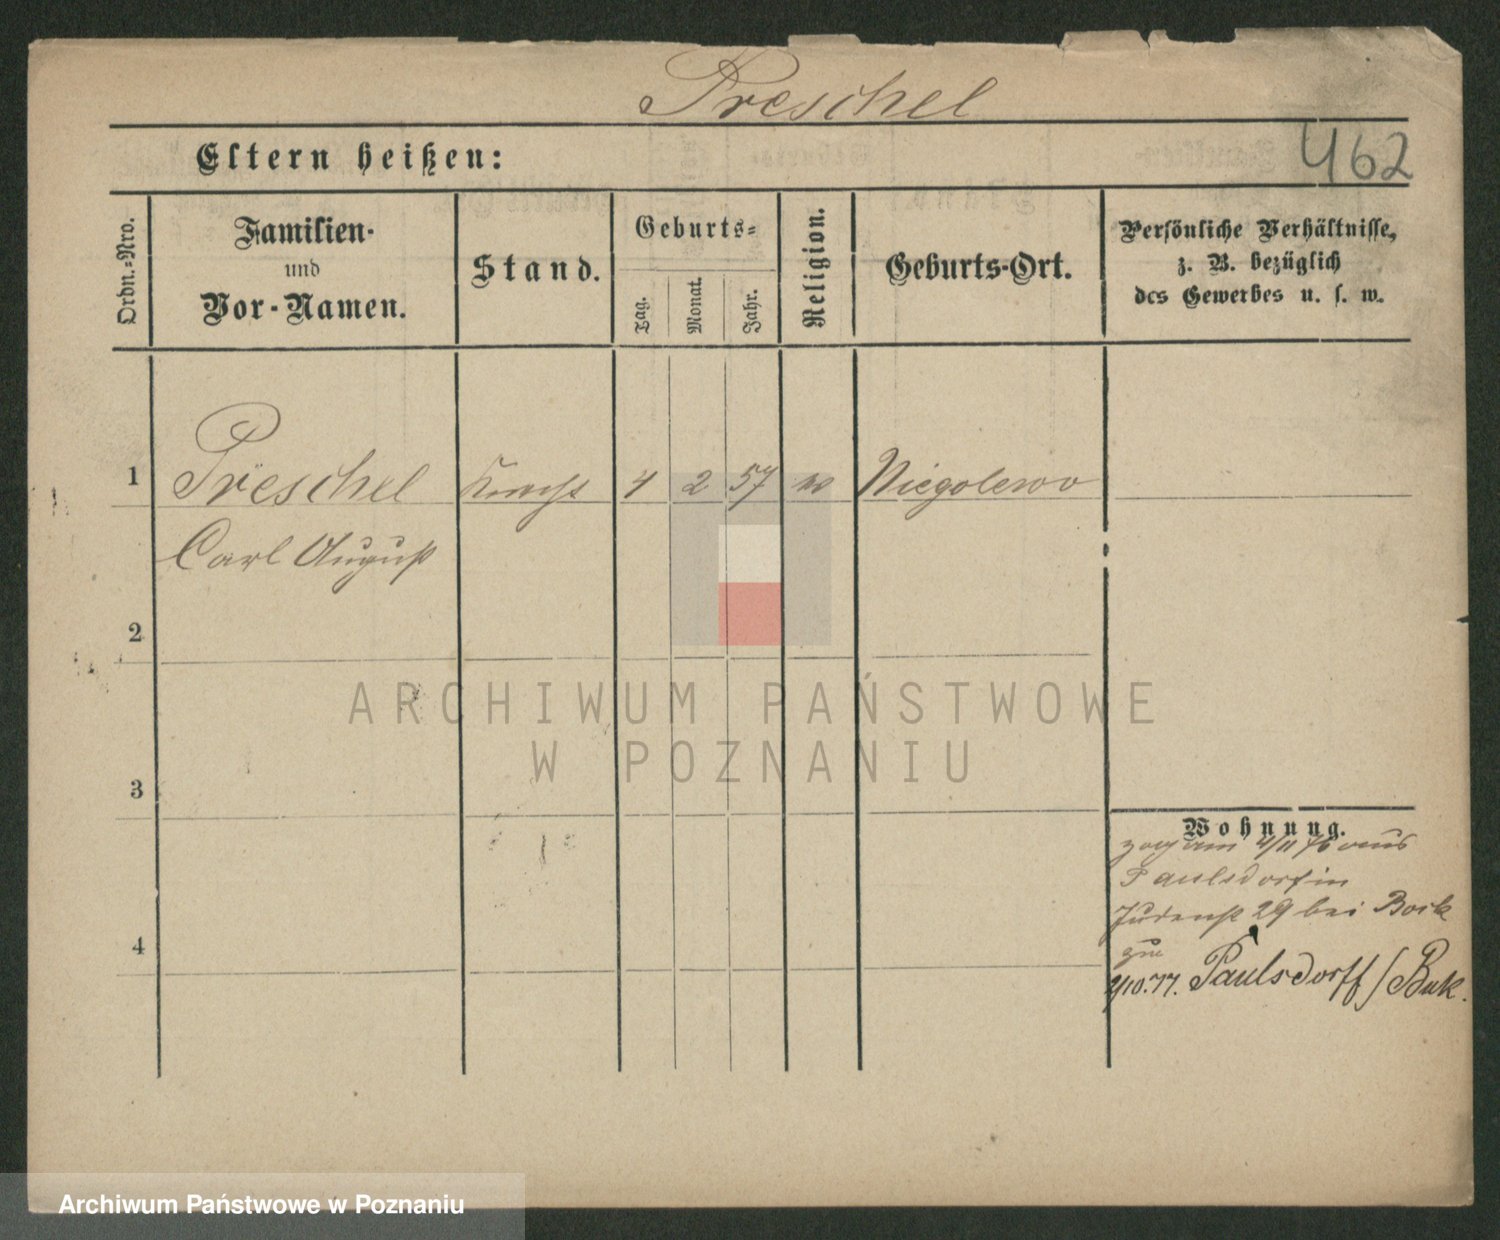 Preschel
462
Eltern heißen:
Ordn.-Nro.
Familien-
und
Vor-Namen.
Stand.
Geburts-
Tag.
Monat.
Jahr.
Religion.
Geburts-Ort.
Persönliche Verhältnisse,
z. B. bezüglich
des Gewerbes u. s. w.
1 Preschel Knecht 4 2 57 Niegolewo
Carl August
2
3
4
ARCHIWUM PAŃSTWOWE
W POZNANIU
Wohnung.
zog am 4/11 76 aus
Paulsdorf in
Judenst 29 bei Bock
2/10.77. Paulsdorff / Buk.
Archiwum Państwowe w Poznaniu